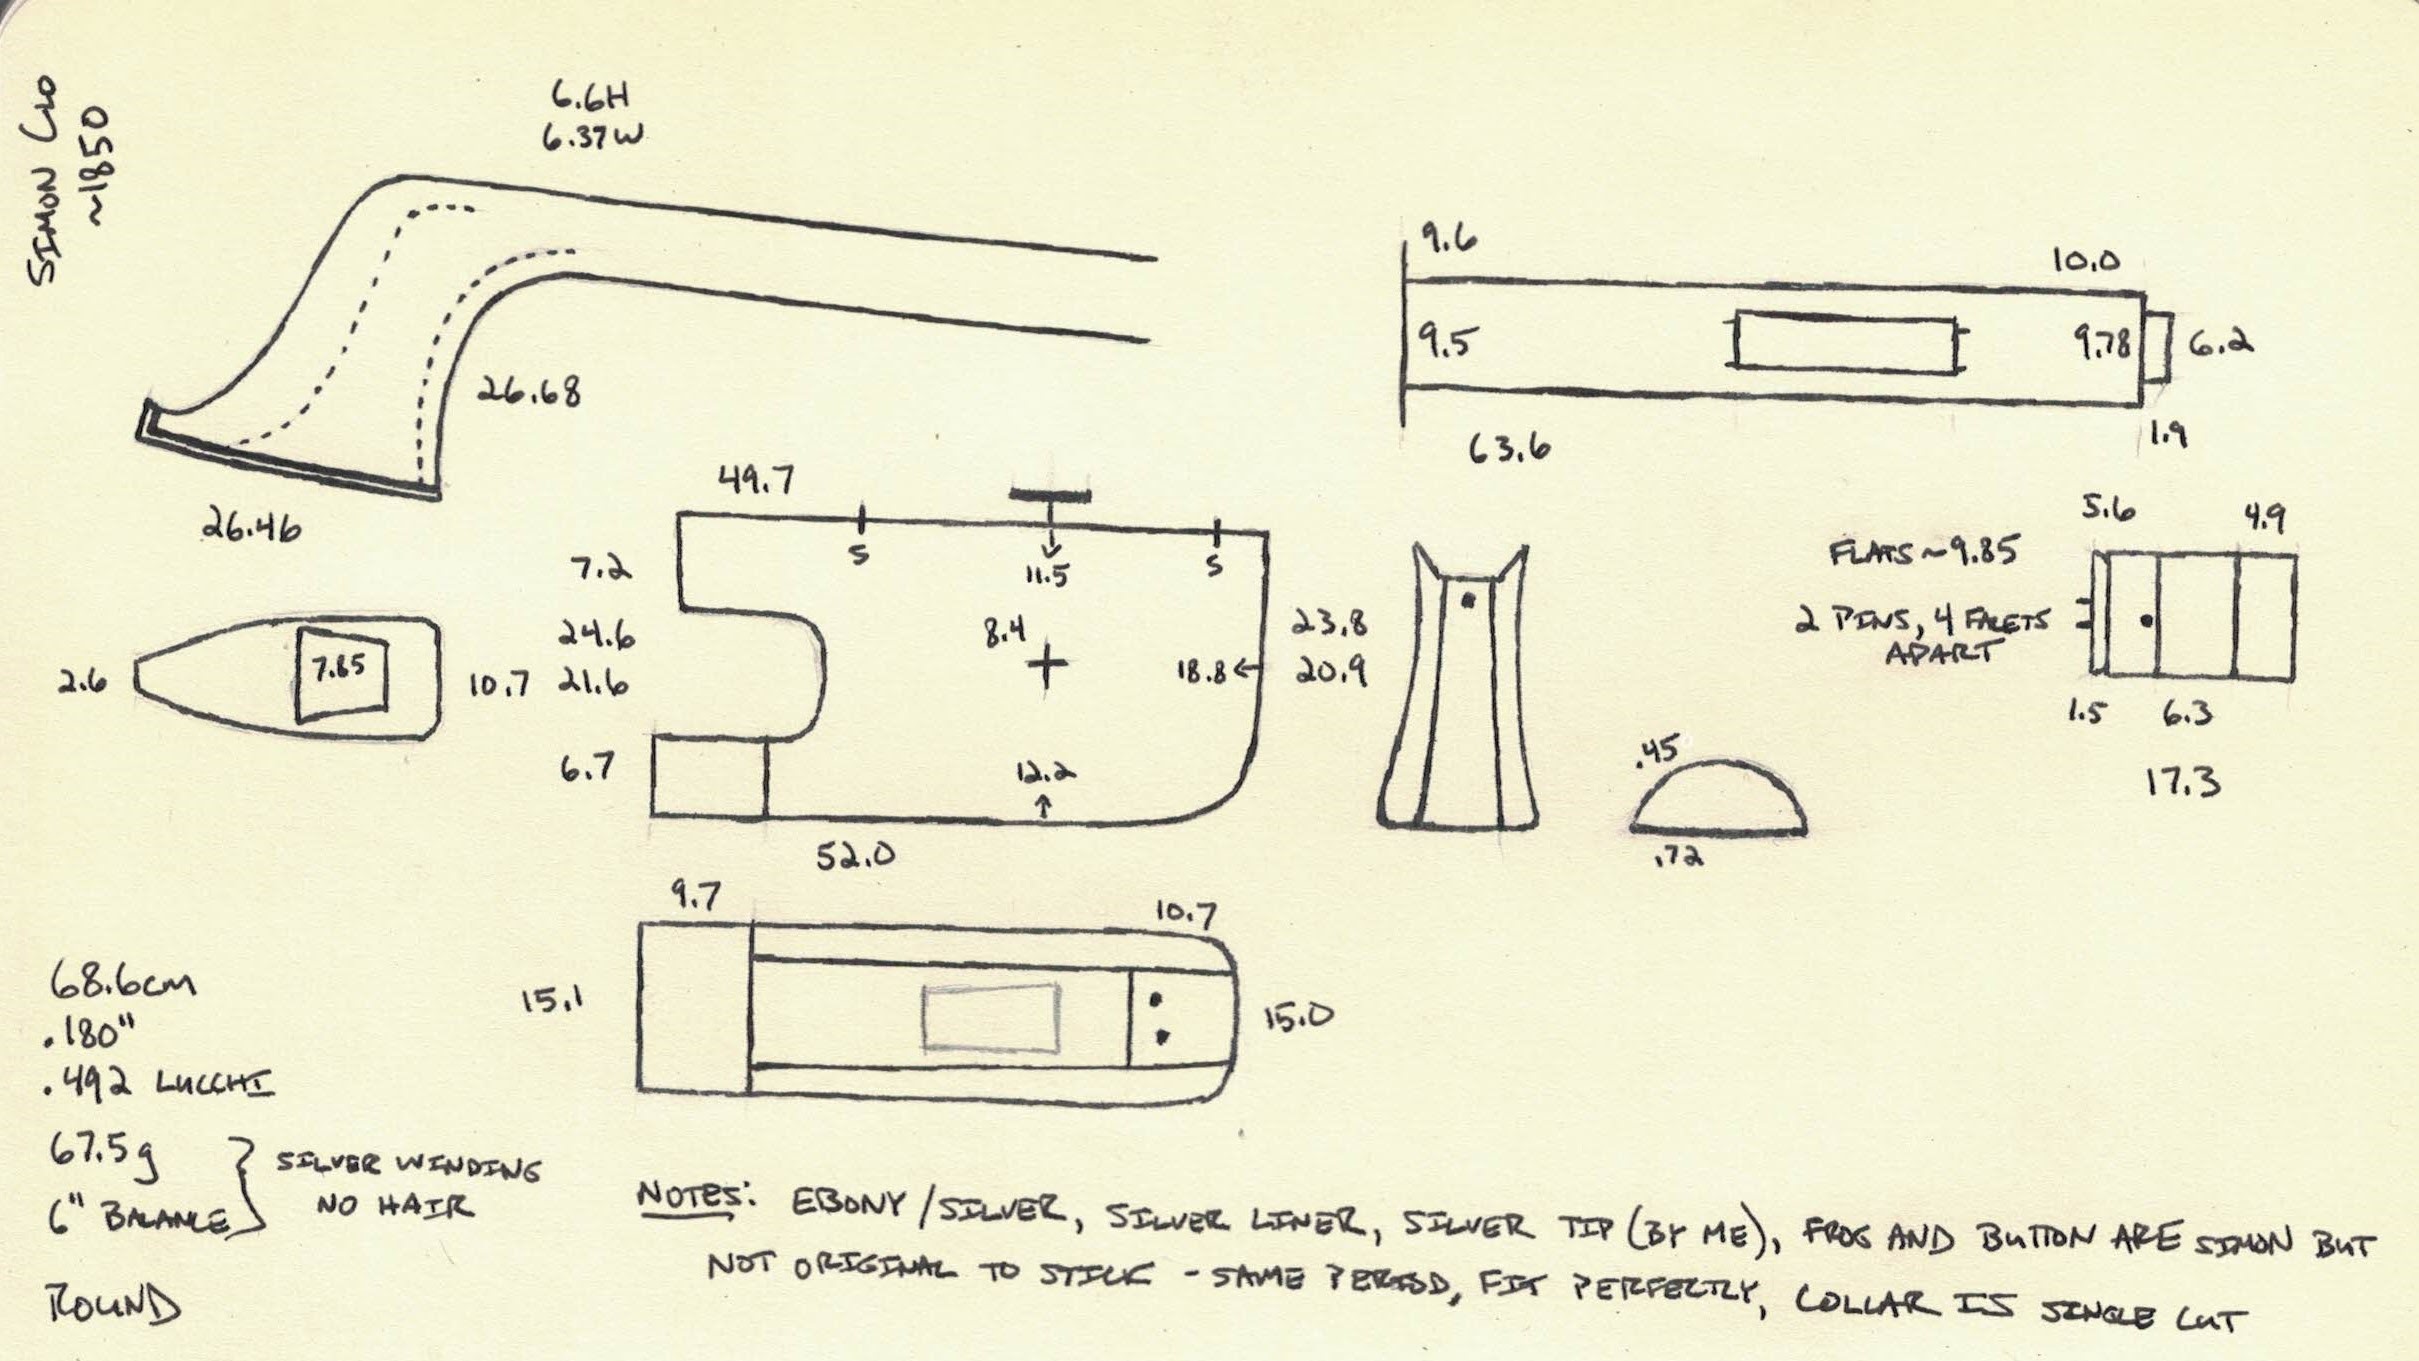 SIMON Clo
~1850
6.6H
6.37W
26.68
26.46
9.6
10.0
9.5
9.78
6.2
63.6
1.9
49.7
5
11.5
5
7.2
24.6
21.6
8.4
18.8
23.8
20.9
6.7
12.2
52.0
2.6
7.65
10.7
5.6
4.9
FLATS ~9.85
2 PINS, 4 FACETS
APART
1.5
6.3
17.3
.45
.72
9.7
10.7
15.1
15.0
68.6cm
.180"
.492 LUCCHI
67.5g
6" BALANCE
SILVER WINDING
NO HAIR
ROUND
NOTES: EBONY/SILVER, SILVER LINER, SILVER TIP (BY ME), FROG AND BUTTON ARE SIMON BUT
NOT ORIGINAL TO STICK - SAME PERIOD, FIT PERFECTLY, COLLAR IS SINGLE CUT